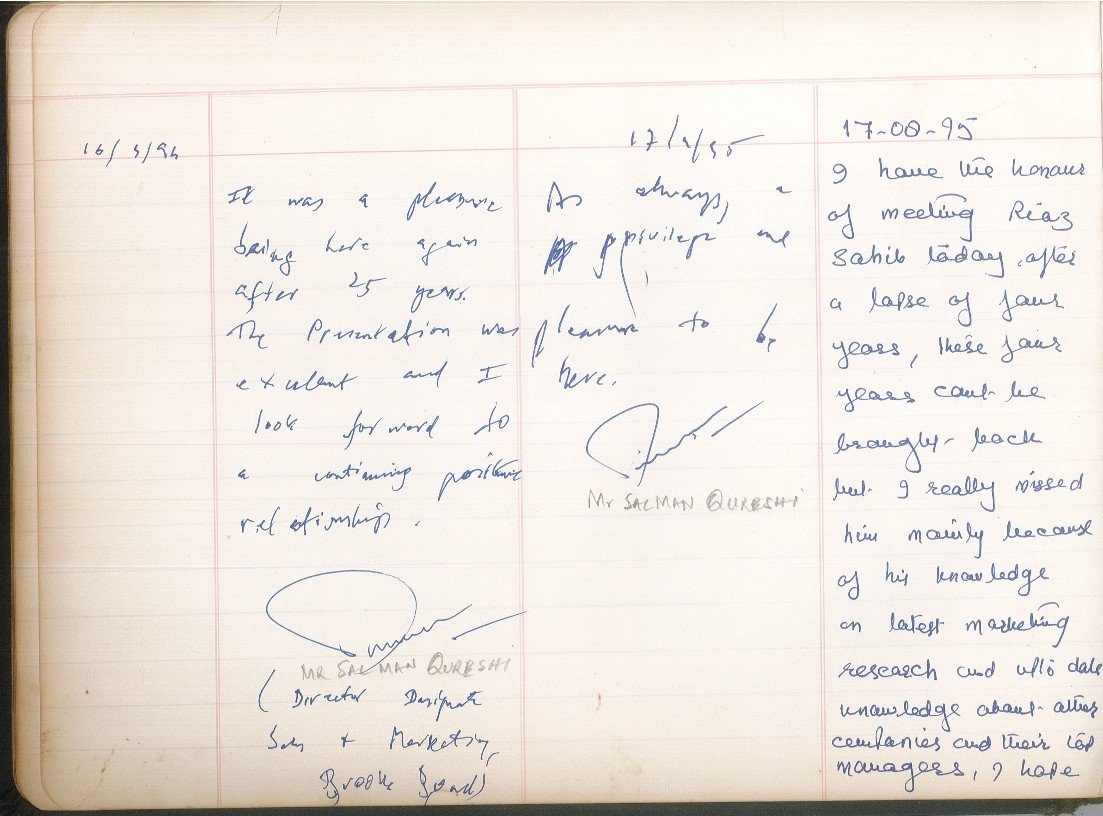 16/3/94
It was a pleasure
being here again
after 25 years.
The Presentation was
excelent and I
look forward to
a continuing positive
relationship.
MR SALMAN QURESHI
( Director Designate
Sales + Marketing,
Brooke Bond)
17/9/95
As always, a
privilege and
pleasure to be
here.
Mr SALMAN QURESHI
17-08-95
I have the honour
of meeting Riaz
Sahib today, after
a lapse of four
years, these four
years cant be
brought back
but I really missed
him mainly because
of his knowledge
on latest marketing
research and upto date
knowledge about other
companies and their top
managers, I hope